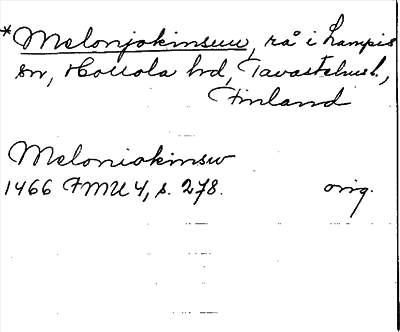 *Melonjokinsuu, rå i Lampis
sn, Hollola hd, Tavastehusl.,
Finland
Meloniokinsw
1466 FMU 4, s. 278. orig.